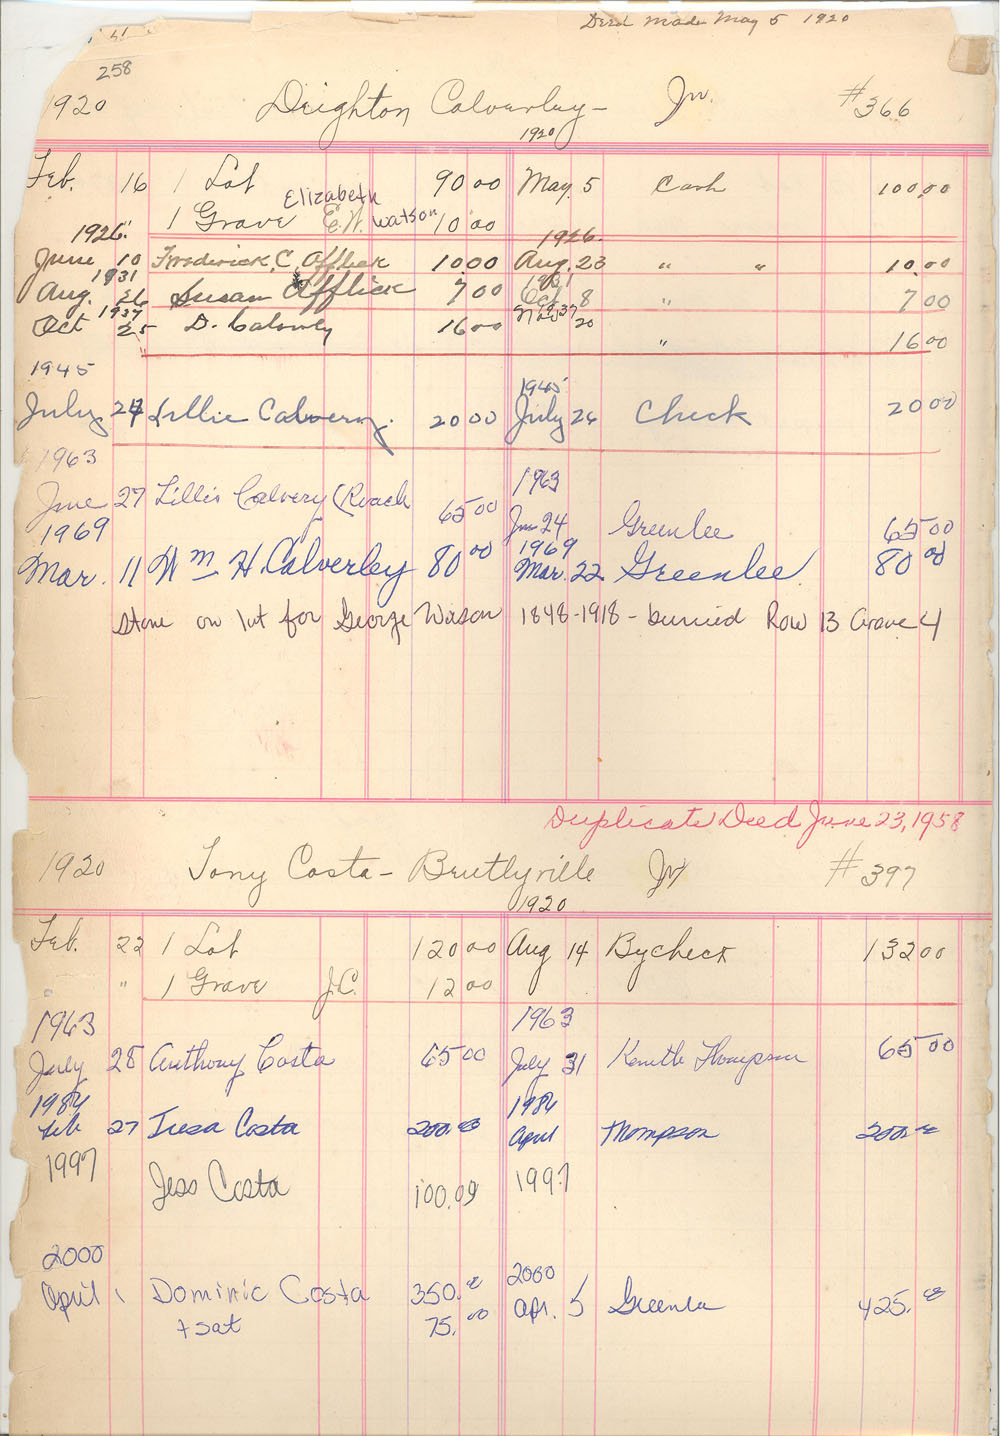 Deed made May 5 1920
258
1920 Deighton Calverley - Jr. #366
1920
Feb. 16 1 Lot 90 00 May. 5 Cash 100.00
Elizabeth
1 Grave E.W. Watson 10 00
1926. 1926.
June 10 Frederick C. Afflick 10 00 Aug. 23 " " 10.00
1931 1931
Aug. 26 Susan Afflick 7 00 Oct. 8 " 7 00
1937 1937
Oct 25 D. Calvrey 16 00 Nov 20 " 16 00
1945 1945
July 24 Lillie Calvery. 20 00 July 26 Check 20 00
1963 1963
June 27 Lillis Calvery (Roach 65 00 Jun 24 Greenlee 65 00
1969 1969
Mar. 11 Wm H. Calverley 80 00 Mar. 22 Greenlee 80 00
Stone on lot for George Wason 1848-1918 - burried Row 13 Grave 4
Duplicate Deed June 23, 1958
1920 Tony Costa - Bentlyville Jr #397
1920
Feb. 22 1 Lot 120 00 Aug 14 By check 132 00
" 1 Grave J.C. 12 00
1963 1963
July 28 Anthony Costa 65 00 July 31 Kenneth Thompson 65 00
1984 1984
Feb 27 Tresa Costa 200.00 April Thompson 200.00
1997 Jess Costa 100.00 1997
2000 2000
April 1 Dominic Costa 350.00 Apr. 5 Greenlee 425.00
+ Sat 75.00